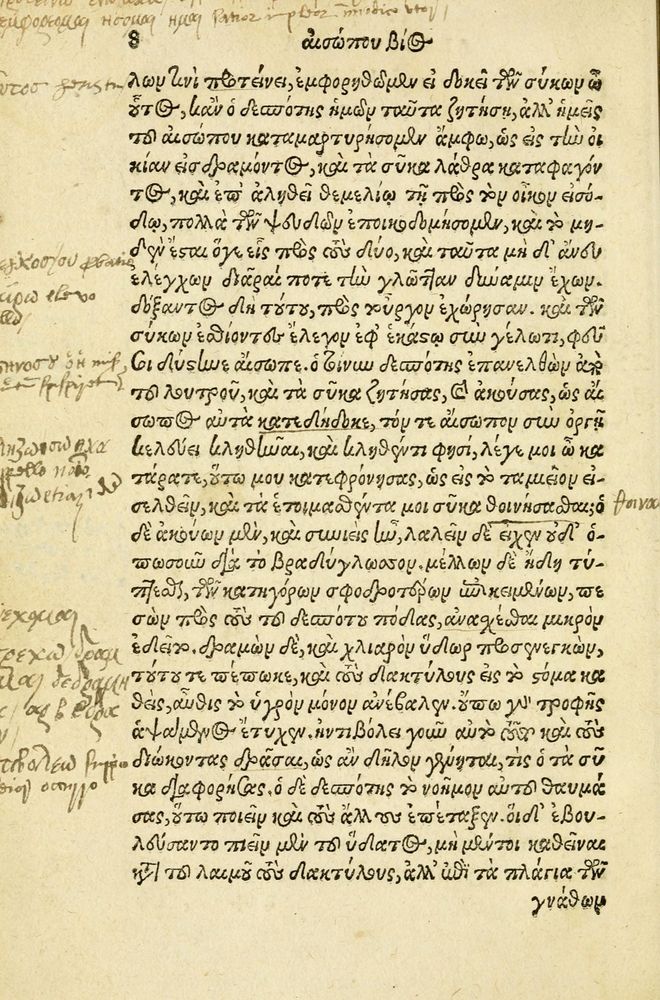 8 αἰσώπου βίος
λων τινὶ προτείνει, ἐμφορηθῶμεν εἰ δοκεῖ τῶν σύκων ὦ
οὗτος, κἂν ὁ δεσπότης ἡμῶν ταῦτα ζητήσῃ, ἀλλ' ἡμεῖς
τοῦ αἰσώπου καταμαρτυρήσομεν ἄμφω, ὡς εἰς τὴν οἰ
κίαν εἰσδραμόντος, καὶ τὰ σῦκα λάθρα καταφαγόν
τος, καὶ ἐπ' ἀληθεῖ θεμελίῳ τῇ πρὸς τὸν οἶκον εἰσό-
δῳ, πολλὰ τῶν ψευδῶν ἐποικοδομήσομεν, καὶ τὸ μη-
δὲν ἔσται ὅγε εἷς πρὸς τοὺς δύο, καὶ ταῦτα μὴ δ' ἄνευ
ἐλέγχων διᾶραί ποτε τὴν γλῶτταν δύναμιν ἔχων.
δόξαντος δὴ τούτου, πρὸς τοὖργον ἐχώρησαν. καὶ τῶν
σύκων ἐσθίοντες ἔλεγον ἐφ' ἑκάστῳ σὺν γέλωτι, φεῦ
σοι δύστηνε αἴσωπε. ὁ τοίνυν δεσπότης ἐπανελθὼν ἀπὸ
τοῦ λουτροῦ, καὶ τὰ σῦκα ζητήσας, καὶ ἀκούσας, ὡς αἴ
σωπος αὐτὰ κατεδήδοκε, τόν τε αἴσωπον σὺν ὀργῇ
κελεύει κληθῆναι, καὶ κληθέντι φησί, λέγε μοι ὦ κα
τάρατε, οὕτω μου κατεφρόνησας, ὡς εἰς τὸ ταμιεῖον εἰ-
σελθεῖν, καὶ τὰ ἑτοιμασθέντα μοι σῦκα θοινήσασθαι; ὁ
δὲ ἀκούων μὲν, καὶ συνιεὶς ἦν, λαλεῖν δὲ εἶχεν οὐδ' ὁ-
πωσοῦν διὰ τὸ βραδύγλωσσον. μέλλων δὲ ἤδη τύ-
πτεσθαι, τῶν κατηγόρων σφοδροτέρων ἐπικειμένων, πε
σὼν πρὸς τοὺς τοῦ δεσπότου πόδας, ἀνασχέσθαι μικρὸν
ἐδεῖτο. δραμὼν δὲ, καὶ χλιαρὸν ὕδωρ προσενεγκὼν,
τοῦτό τε πέπωκε, καὶ τοὺς δακτύλους εἰς τὸ στόμα κα
θεὶς, αὖθις τὸ ὑγρὸν μόνον ἀνέβαλεν. οὔπω γὰρ τροφῆς
ἁψάμενος ἔτυχεν. ἠντιβόλει γοῦν αὐτὸ τοῦτο καὶ τοὺς
διώκοντας δρᾶσαι, ὡς ἂν δῆλον γένηται, τίς ὁ τὰ σῦ
κα διαφορήσας. ὁ δὲ δεσπότης τὸ νοῆμον αὐτοῦ θαυμά
σας, οὕτω ποιεῖν καὶ τοὺς ἄλλους ἐπέταξεν. οἱ δ' ἐβου-
λεύσαντο πιεῖν μὲν τοῦ ὕδατος, μὴ μέντοι καθεῖναι
κατὰ τοῦ λαιμοῦ τοὺς δακτύλους, ἀλλ' ἐπὶ τὰ πλάγια τῶν
γνάθων